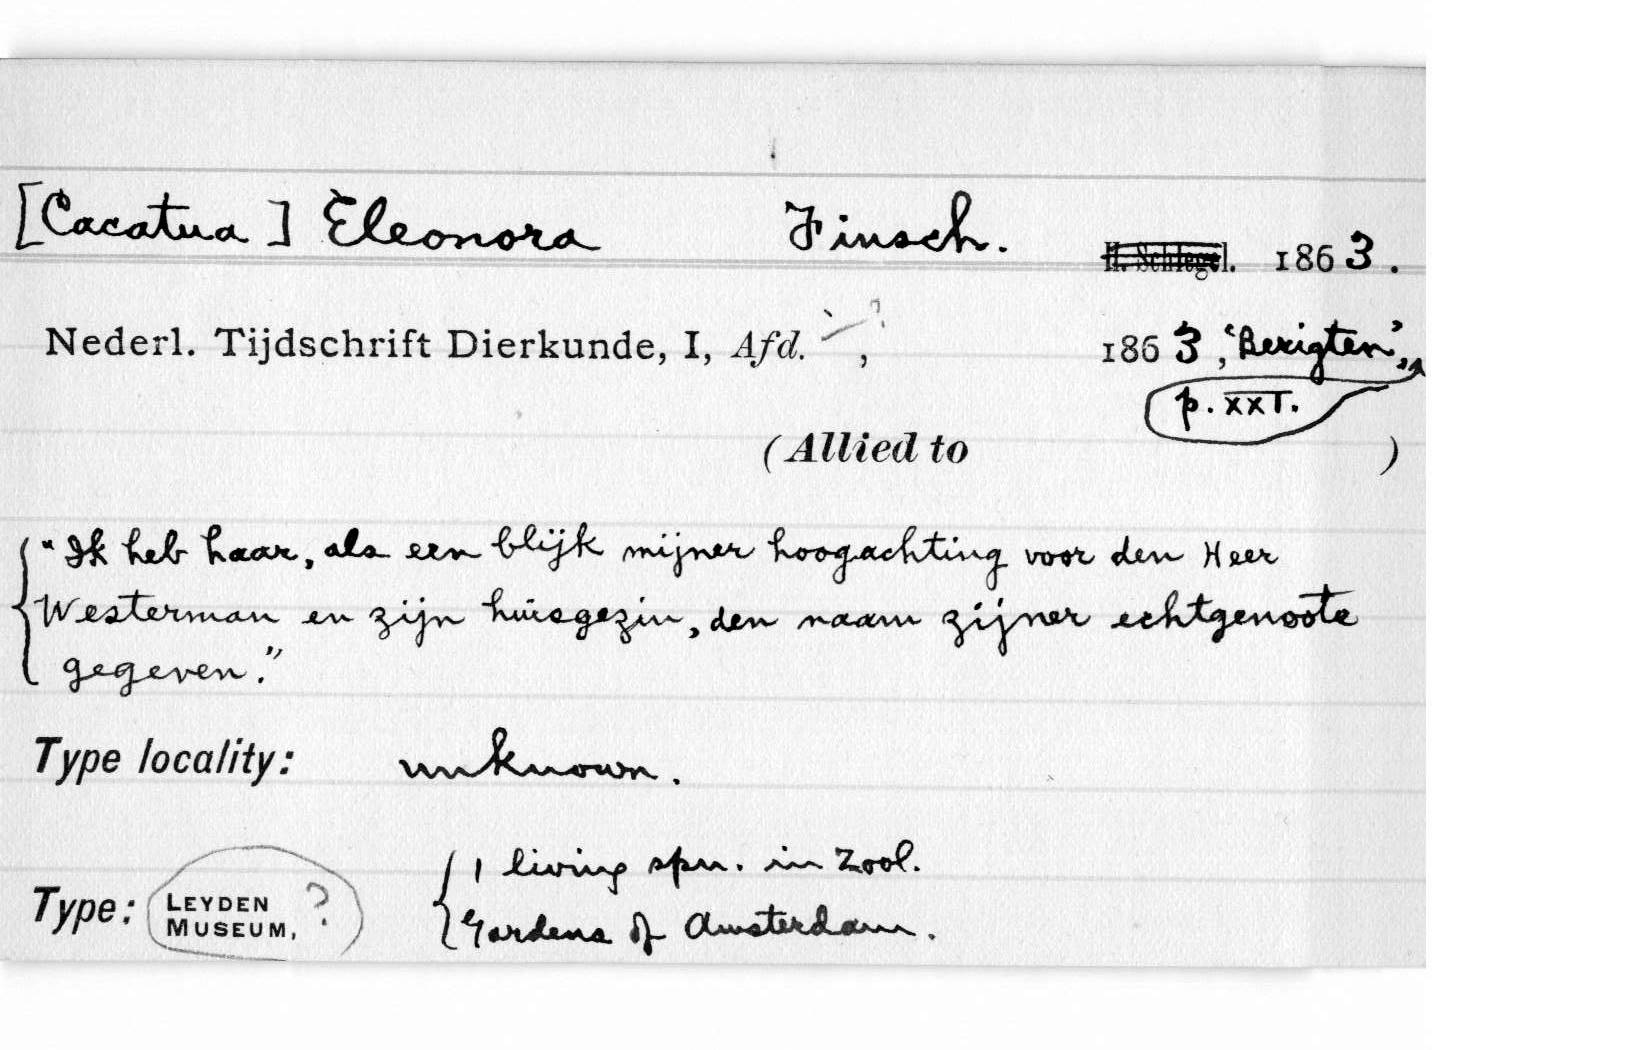 [Cacatua] Eleonora Finsch. H. Schlegel. 1863.
Nederl. Tijdschrift Dierkunde, I, Afd. ?, 1863, "Berigten",
p. XXI.
(Allied to )
"Ik heb haar, als een blijk mijner hoogachting voor den Heer
Westerman en zijn huisgezin, den naam zijner echtgenoote
gegeven."
Type locality: unknown.
1 living spn. in Zool.
Type: LEYDEN MUSEUM, ? Gardens of Amsterdam.